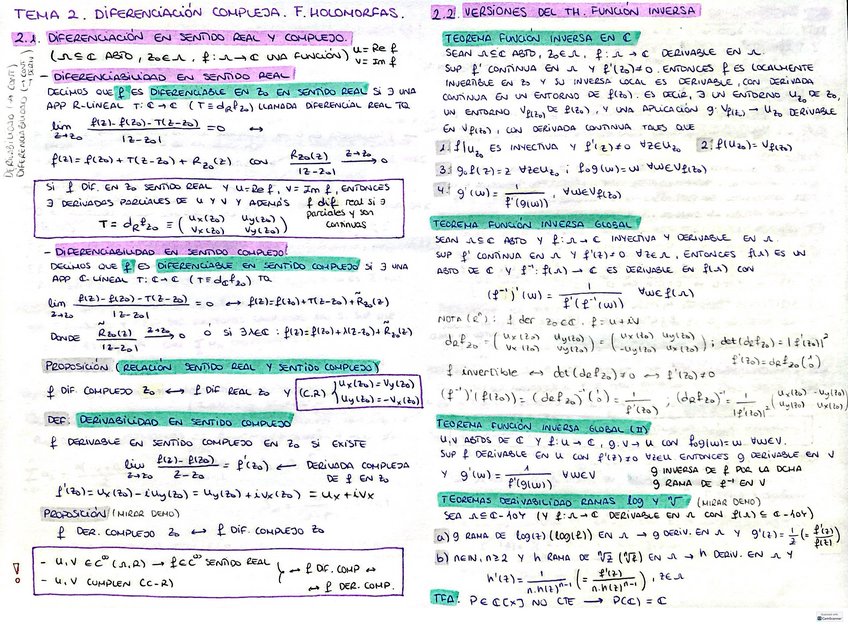 TEMA 2. DIFERENCIACIÓN COMPLEJA. F. HOLOMORFAS.
2.1. DIFERENCIACIÓN EN SENTIDO REAL Y COMPLEJO.
(Ω⊆ℂ ABTO, z₀∈Ω, f: Ω→ℂ UNA FUNCIÓN) u = Re f
v = Im f
- DIFERENCIABILIDAD EN SENTIDO REAL
DECIMOS QUE f ES DIFERENCIABLE EN z₀ EN SENTIDO REAL SI ∃ UNA
APP ℝ-LINEAL T: ℂ→ℂ (T≡d_ℝf_z₀) LLAMADA DIFERENCIAL REAL TQ
lim z→z₀ (f(z)-f(z₀)-T(z-z₀))/|z-z₀| = 0 ↔
f(z)=f(z₀)+T(z-z₀)+R_z₀(z) CON R_z₀(z)/|z-z₀| →(z→z₀) 0
SI f DIF. EN z₀ SENTIDO REAL Y u=Re f, v= Im f, ENTONCES
∃ DERIVADAS PARCIALES DE u Y v ADEMÁS
f dif real si ∃ parciales y son continuas
T = d_ℝf_z₀ ≡ (u_x(z₀) u_y(z₀) / v_x(z₀) v_y(z₀))
- DIFERENCIABILIDAD EN SENTIDO COMPLEJO
DECIMOS QUE f ES DIFERENCIABLE EN SENTIDO COMPLEJO SI ∃ UNA
APP ℂ-LINEAL T: ℂ→ℂ (T≡d_ℂf_z₀) TQ
lim z→z₀ (f(z)-f(z₀)-T(z-z₀))/|z-z₀| = 0 ↔ f(z)=f(z₀)+T(z-z₀)+R̃_z₀(z)
DONDE R̃_z₀(z)/|z-z₀| →(z→z₀) 0 ó SI ∃λ∈ℂ : f(z)=f(z₀)+λ(z-z₀)+R̃_z₀(z)
PROPOSICIÓN (RELACIÓN SENTIDO REAL Y SENTIDO COMPLEJO)
f DIF COMPLEJO z₀ ↔ f DIF REAL z₀ Y (C.R) { u_x(z₀)=v_y(z₀)
u_y(z₀)=-v_x(z₀)
DEF: DERIVABILIDAD EN SENTIDO COMPLEJO
f DERIVABLE EN SENTIDO COMPLEJO EN z₀ SI EXISTE
lim z→z₀ (f(z)-f(z₀))/(z-z₀) = f'(z₀) ← DERIVADA COMPLEJA
DE f EN z₀
f'(z₀)= u_x(z₀)-iu_y(z₀)= v_y(z₀)+iv_x(z₀) = u_x+iv_x
PROPOSICIÓN (MIRAR DEMO)
f DER. COMPLEJO z₀ ↔ f DIF. COMPLEJO z₀
! - u, v ∈ C^∞(Ω,ℝ) → f∈C^∞ SENTIDO REAL
- u, v CUMPLEN CC-R) } ↔ f DIF. COMP ↔
↔ f DER. COMP.
2.2. VERSIONES DEL TH. FUNCIÓN INVERSA
TEOREMA FUNCIÓN INVERSA EN ℂ
SEAN Ω⊆ℂ ABTO, z₀∈Ω, f: Ω→ℂ DERIVABLE EN Ω.
SUP f' CONTINUA EN Ω Y f'(z₀)≠0. ENTONCES f ES LOCALMENTE
INVERTIBLE EN z₀ Y SU INVERSA LOCAL ES DERIVABLE, CON DERIVADA
CONTINUA EN UN ENTORNO DE f(z₀). ES DECIR, ∃ UN ENTORNO U_z₀ DE z₀,
UN ENTORNO V_f(z₀) DE f(z₀), Y UNA APLICACIÓN g: V_f(z₀)→U_z₀ DERIVABLE
EN V_f(z₀), CON DERIVADA CONTINUA TALES QUE
1. f|U_z₀ ES INYECTIVA Y f'(z)≠0 ∀z∈U_z₀ 2. f(U_z₀)=V_f(z₀)
3. g∘f(z)=z ∀z∈U_z₀ ; f∘g(w)=w ∀w∈V_f(z₀)
4. g'(w) = 1/f'(g(w)), ∀w∈V_f(z₀)
TEOREMA FUNCIÓN INVERSA GLOBAL
SEAN Ω⊆ℂ ABTO Y f: Ω→ℂ INYECTIVA Y DERIVABLE EN Ω.
SUP f' CONTINUA EN Ω Y f'(z)≠0 ∀z∈Ω, ENTONCES f(Ω) ES UN
ABTO DE ℂ Y f⁻¹: f(Ω)→ℂ ES DERIVABLE EN f(Ω) CON
(f⁻¹)'(w) = 1/f'(f⁻¹(w)) ∀w∈f(Ω)
NOTA (ℝ²): f der z₀∈ℂ. f = u+iv
d_ℝf_z₀ = (u_x(z₀) u_y(z₀) / v_x(z₀) v_y(z₀)) = (u_x(z₀) u_y(z₀) / -u_y(z₀) u_x(z₀)) ; det(d_ℝf_z₀) = |f'(z₀)|²
f'(z₀)= d_ℝf_z₀(1 0)
f invertible ↔ det(d_ℝf_z₀)≠0 ↔ f'(z₀)≠0
(f⁻¹)'(f(z₀)) = (d_ℝf_z₀)⁻¹(1 0) = 1/f'(z₀) ; (d_ℝf_z₀)⁻¹ = 1/|f'(z₀)|² (u_x(z₀) -u_y(z₀) / u_y(z₀) u_x(z₀))
TEOREMA FUNCIÓN INVERSA GLOBAL (II)
U, V ABTOS DE ℂ Y f: U→ℂ, g: V→U CON f∘g(w)=w ∀w∈V.
SUP f DERIVABLE EN U CON f'(z)≠0 ∀z∈U ENTONCES g DERIVABLE EN V
Y g'(w) = 1/f'(g(w)) ∀w∈V
g INVERSA DE f POR LA DCHA
g RAMA DE f⁻¹ EN V
TEOREMAS DERIVABILIDAD RAMAS log Y √ (MIRAR DEMO)
SEA Ω⊆ℂ-{0} (Y f: Ω→ℂ DERIVABLE EN Ω CON f(Ω)⊆ℂ-{0})
a) g RAMA DE log(z) (log(f)) EN Ω → g DERIV. EN Ω Y g'(z)=1/z (= f'(z)/f(z))
b) n∈ℕ, n≥2 Y h RAMA DE ⁿ√z (ⁿ√f) EN Ω → h DERIV. EN Ω Y
h'(z) = 1/(n·h(z)ⁿ⁻¹) (= f'(z)/(n·h(z)ⁿ⁻¹)), z∈Ω
TFA. P∈ℂ[X] NO CTE → P(ℂ) = ℂ
CamScanner